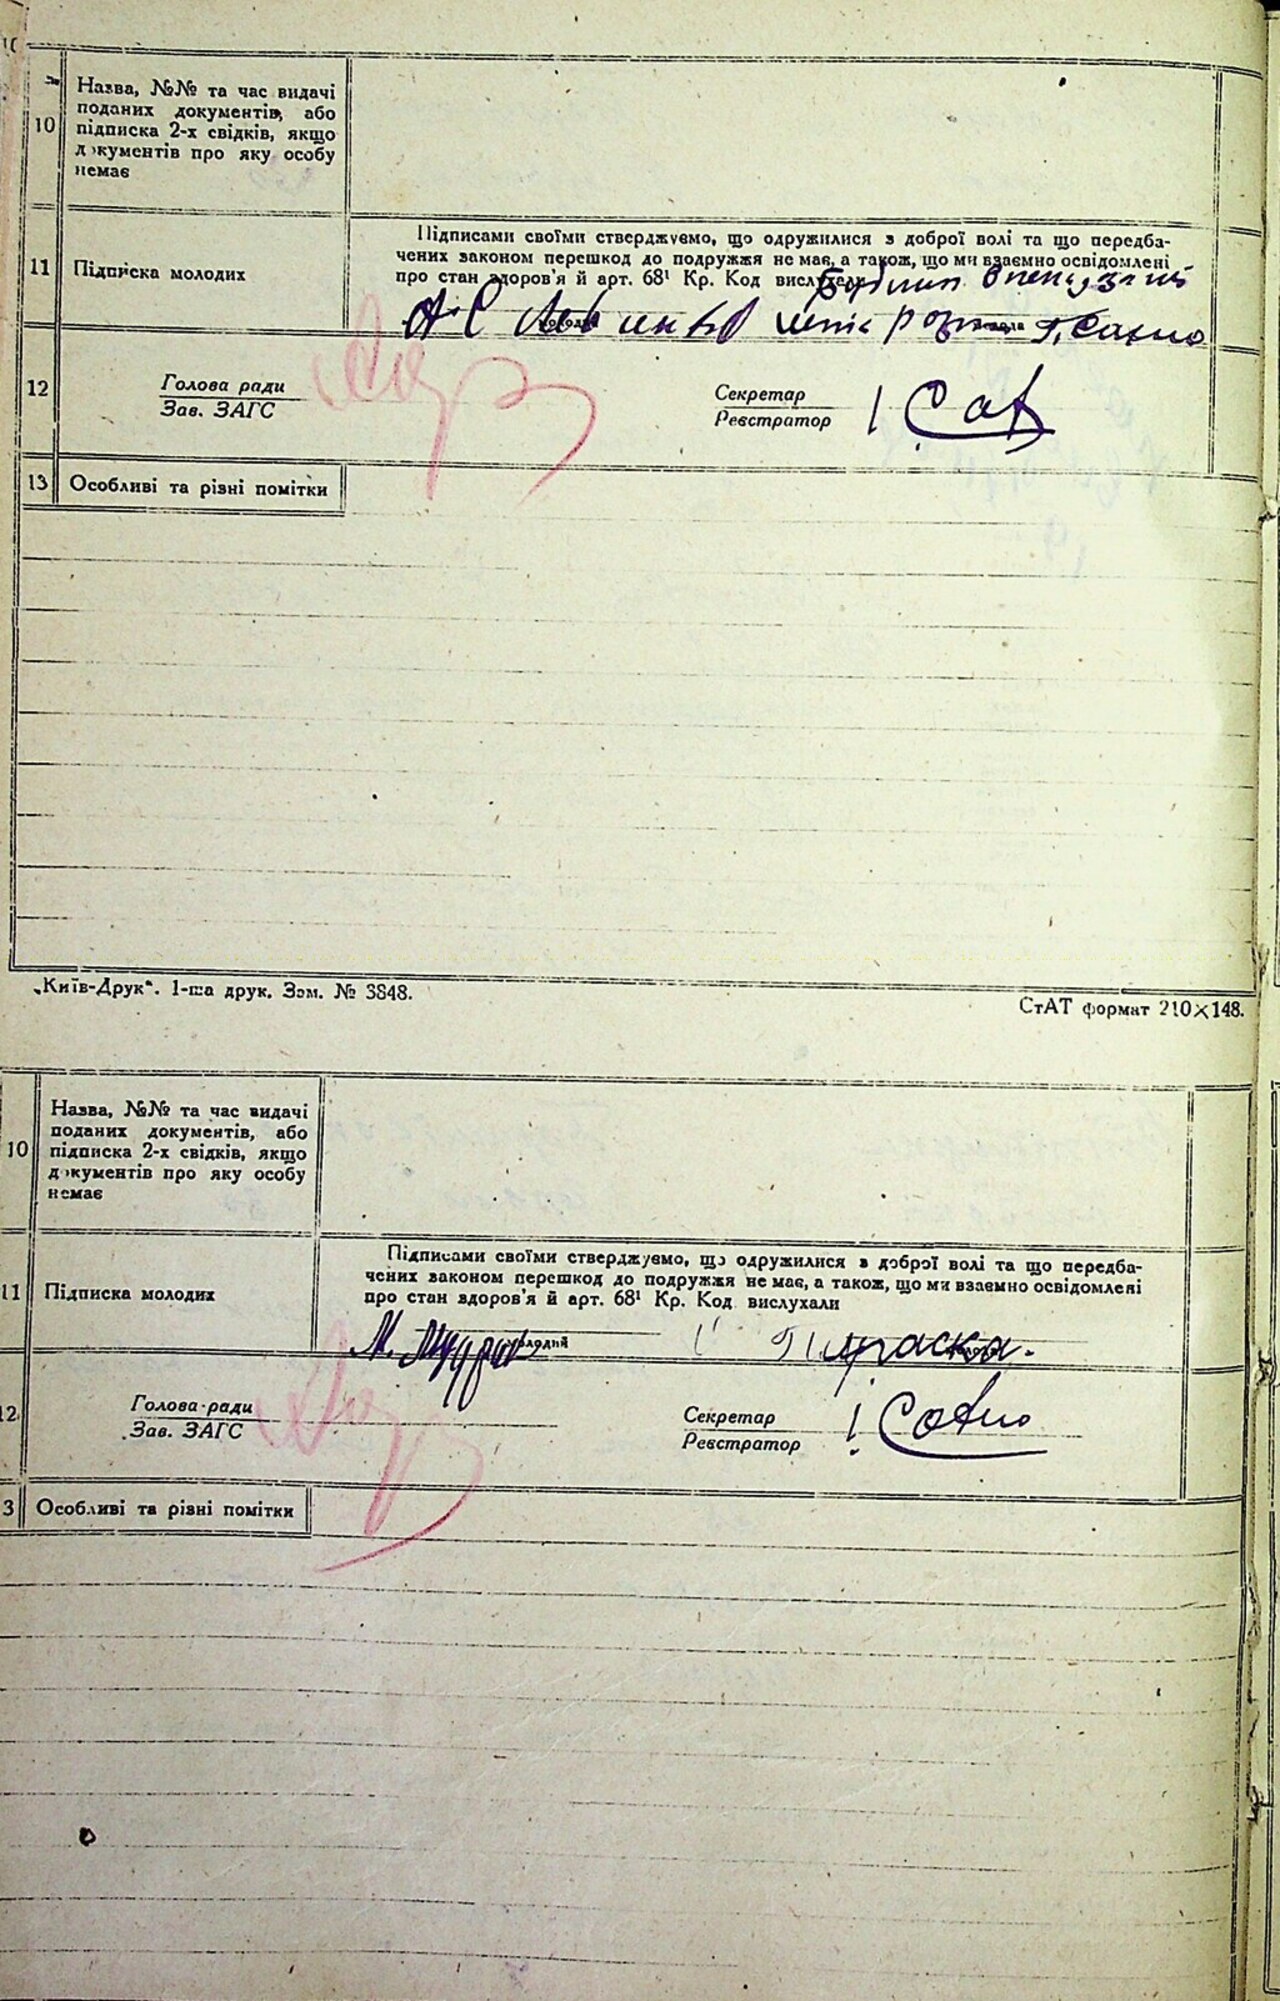 10
Назва, №№ та час видачі
поданих документів, або
підписка 2-х свідків, якщо
документів про яку особу
немає
11
Підписка молодих
Підписами своїми стверджуємо, що одружилися з доброї волі та що передба-
чених законом перешкод до подружжя не має, а також, що ми взаємно освідомлені
про стан здоров'я й арт. 68¹ Кр. Код вислухали
молодий
молода
12
Голова ради
Зав. ЗАГС
Секретар
Реєстратор
13
Особливі та різні помітки
„Київ-Друк". 1-ша друк. Зам. № 3848.
СтАТ формат 210×148.
10
Назва, №№ та час видачі
поданих документів, або
підписка 2-х свідків, якщо
документів про яку особу
немає
11
Підписка молодих
Підписами своїми стверджуємо, що одружилися з доброї волі та що передба-
чених законом перешкод до подружжя не має, а також, що ми взаємно освідомлені
про стан здоров'я й арт. 68¹ Кр. Код вислухали
молодий
молода
12
Голова ради
Зав. ЗАГС
Секретар
Реєстратор
3
Особливі та різні помітки